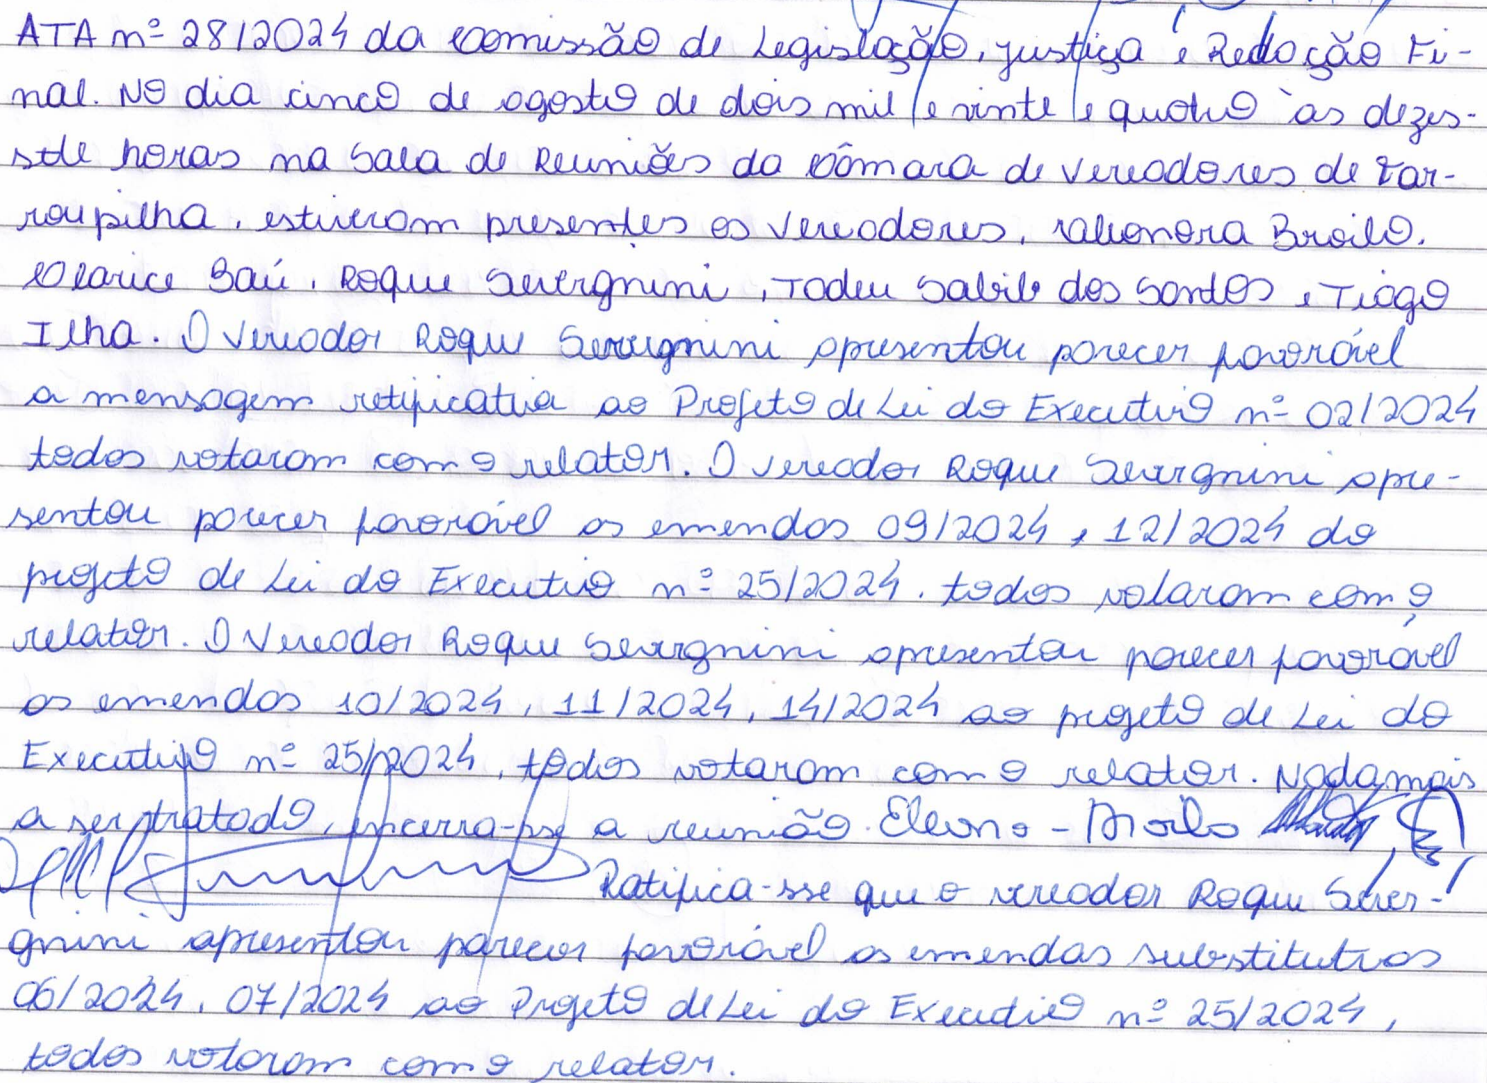 ATA nº 28/2024 da Comissão de Legislação, Justiça e Redação Fi-
nal. No dia cinco de agosto de dois mil e vinte e quatro às dezes-
sete horas na Sala de Reuniões da Câmara de Vereadores de Far-
roupilha, estiveram presentes os Vereadores, Calionora Broilo,
Clarice Baú, Roque Severgnini, Tadeu Salib dos Santos e Tiago
Ilha. O Vereador Roque Severgnini apresentou parecer favorável
a mensagem retificativa ao Projeto de Lei do Executivo nº 02/2024
todos votaram com o relator. O Vereador Roque Severgnini apre-
sentou parecer favorável as emendas 09/2024, 12/2024 do
projeto de Lei do Executivo nº 25/2024. todos votaram com o
relator. O Vereador Roque Severgnini apresentou parecer favorável
as emendas 10/2024, 11/2024, 14/2024 ao projeto de Lei do
Executivo nº 25/2024, todos votaram com o relator. Nada mais
a ser tratado, encerra-se a reunião. Eleono - Broilo
Ratifica-sse que o vereador Roque Sever-
gnini apresentou parecer favorável as emendas substitutivas
06/2024, 07/2024 ao Projeto de Lei do Executivo nº 25/2024,
todos votaram com o relator.